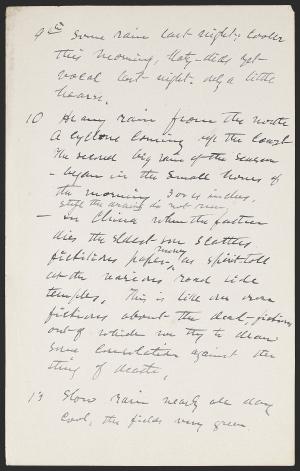 9th Some rain last night; cooler
this morning, Katy-dids yet
vocal last night. only a little
hoarse.
10 Heavy rain from the north
A cyclone coming up the coast
The second big rain of the season
- began in the small hours of
the morning 3 or 4 inches,
still the drains do not run.
— In China when the father
dies the eldest son scatters
fictitious paper money as spirit toll
at the various road side
temples, This is like our own
fictions about the dead, fictions
out of which we try to draw
some consolation against the
sting of death.
13 Slow rain nearly all day
Cool, the fields very green